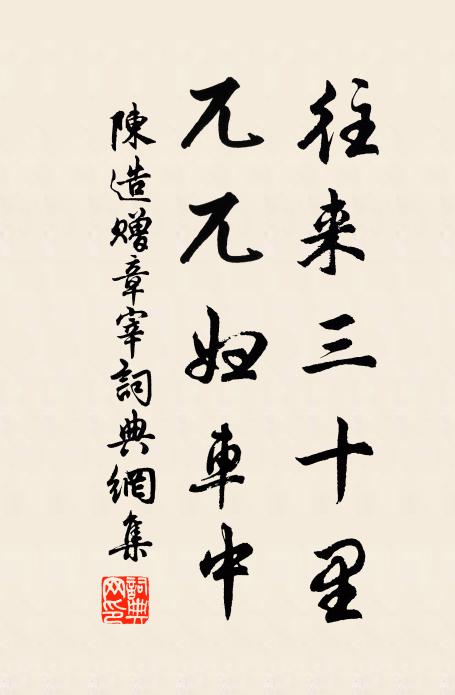 往来三十里
兀兀妇車中
陳造赠章宰詞典網集
詞典
网印